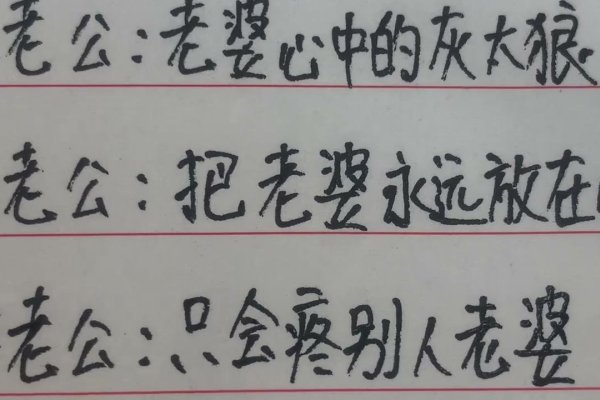 老公:老婆心中的灰太狼
老公:把老婆永远放在
老公:只会疼别人老婆